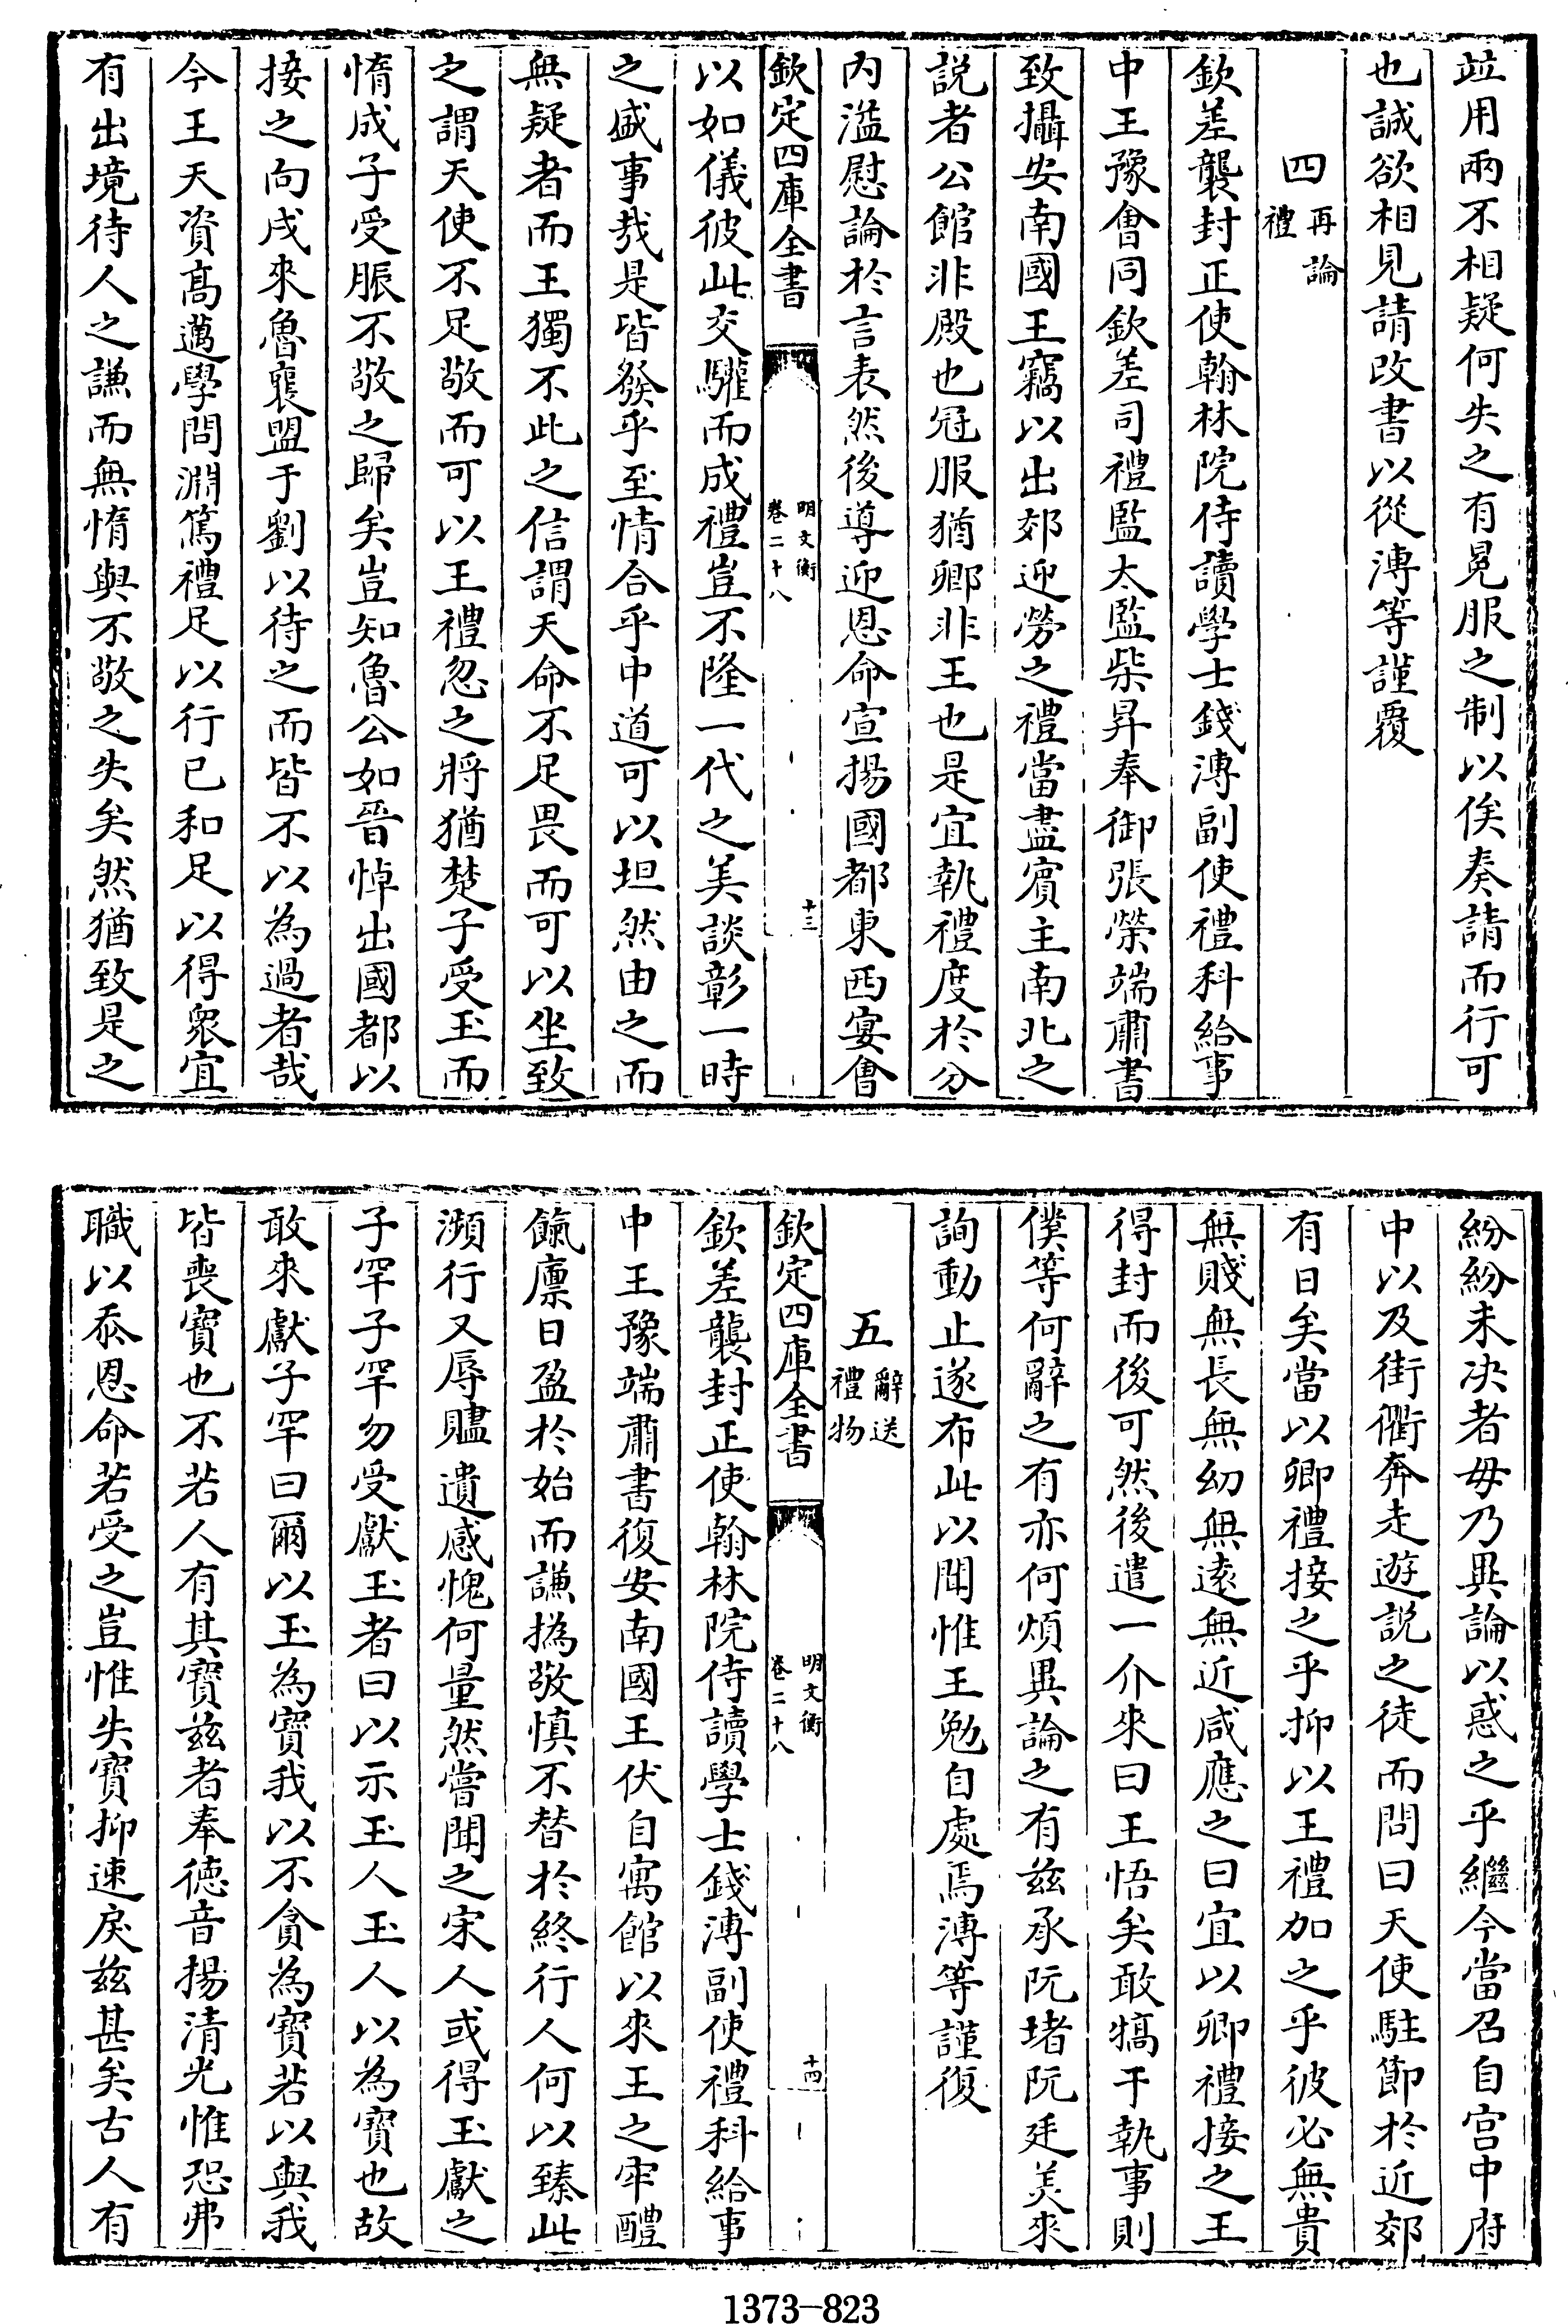 竝用兩不相疑何失之有冕服之制以俟奏請而行可
也誠欲相見請改書以從溥等謹覆
四再論禮
欽差襲封正使翰林院侍讀學士錢溥副使禮科給事
中王豫會同欽差司禮監太監柴昇奉御張榮端肅書
致攝安南國王竊以出郊迎勞之禮當盡賓主南北之
説者公館非殿也冠服猶卿非王也是宜執禮度於分
内溢慰論於言表然後導迎恩命宣揚國都東西宴會
欽定四庫全書 明文衡 卷二十八 十三
以如儀彼此交驩而成禮豈不隆一代之美談彰一時
之盛事哉是皆發乎至情合乎中道可以坦然由之而
無疑者而王獨不此之信謂天命不足畏而可以坐致
之謂天使不足敬而可以王禮忽之將猶楚子受玉而
惰成子受脤不敬之歸矣豈知魯公如晉悼出國都以
接之向戌來魯襄盟于劉以待之而皆不以為過者哉
今王天資高邁學問淵篤禮足以行已和足以得衆宜
有出境待人之謙而無惰與不敬之失矣然猶致是之
紛紛未决者毋乃異論以惑之乎繼今當召自宫中府
中以及街衢奔走遊説之徒而問曰天使駐節於近郊
有日矣當以卿禮接之乎抑以王禮加之乎彼必無貴
無賤無長無幼無遠無近咸應之曰宜以卿禮接之王
得封而後可然後遣一介來曰王悟矣敢犒于執事則
僕等何辭之有亦何煩異論之有兹承阮堵阮廷美來
詢動止遂布此以聞惟王勉自處焉溥等謹復
五辭送禮物
欽定四庫全書 明文衡 卷二十八 十四
欽差襲封正使翰林院侍讀學士錢溥副使禮科給事
中王豫端肅書復安南國王伏自寓館以來王之牢醴
餼廪日盈於始而謙撝敬慎不替於終行人何以臻此
瀕行又辱贐遺感愧何量然嘗聞之宋人或得玉獻之
子罕子罕勿受獻玉者曰以示玉人玉人以為寶也故
敢來獻子罕曰爾以玉為寶我以不貪為寶若以與我
皆喪寶也不若人有其寶兹者奉徳音揚清光惟恐弗
職以忝恩命若受之豈惟失寶抑速戾兹甚矣古人有
1373—823